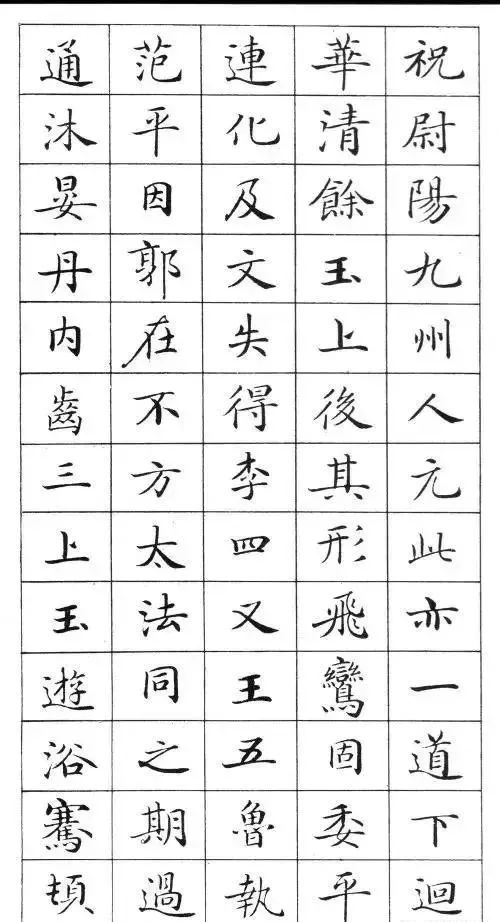 祝尉陽九州人元此亦一道下迴
華清餘玉上後其形飛鸞固委平
連化及文失得李四又王五魯執
范平因郭在不方太法同之期過
通沐晏丹内齒三上玉遊浴騫頓